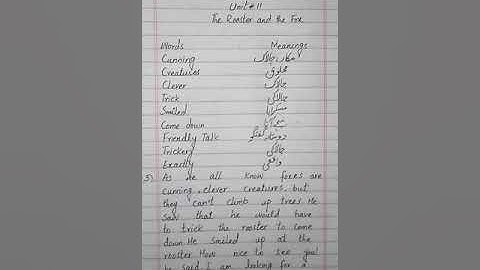 Unit # 11
The Rooster and the Fox
Words Meanings
Cunning مکار، چالاک
Creatures مخلوق
Clever چالاک
Trick چالاکی
Smiled مسکرایا
Come down نیچے آنا
Friendly Talk دوستانہ گفتگو
Trickery چالاکی
Exactly واقعی
3) As we all know foxes are
cunning, clever creatures, but
they can't climb up trees. He
saw that he would have
to trick the rooster to come
down. He smiled up at the
rooster. How nice to see you!
he said I am looking for a